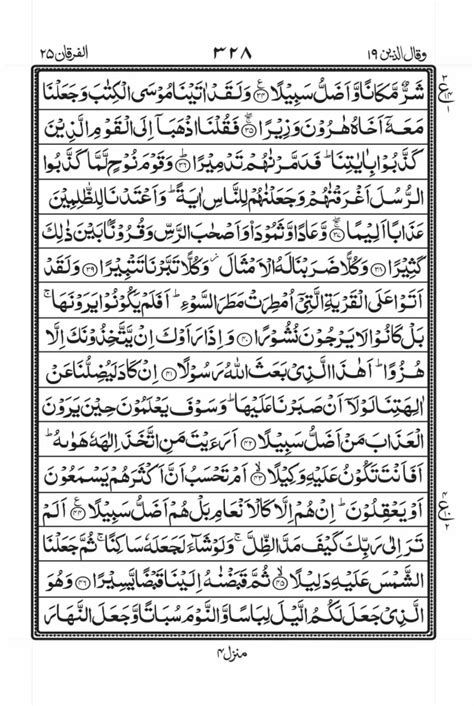 وقال الذين ۱۹ ۳۲۸ الفرقان ۲۵
شَرٌّ مَّكَانًا وَّاَضَلُّ سَبِيْلًا ﴿۳۴﴾ وَلَقَدْ اٰتَيْنَا مُوْسَى الْكِتٰبَ وَجَعَلْنَا
مَعَهٗۤ اَخَاهُ هٰرُوْنَ وَزِيْرًا ﴿۳۵﴾ فَقُلْنَا اذْهَبَاۤ اِلَى الْقَوْمِ الَّذِيْنَ
كَذَّبُوْا بِاٰيٰتِنَا ؕ فَدَمَّرْنٰهُمْ تَدْمِيْرًا ﴿۳۶﴾ وَقَوْمَ نُوْحٍ لَّمَّا كَذَّبُوا
الرُّسُلَ اَغْرَقْنٰهُمْ وَجَعَلْنٰهُمْ لِلنَّاسِ اٰيَةً ؕ وَاَعْتَدْنَا لِلظّٰلِمِيْنَ
عَذَابًا اَلِيْمًا ﴿۳۷﴾ وَّعَادًا وَّثَمُوْدَاۡ وَاَصْحٰبَ الرَّسِّ وَقُرُوْنًۢا بَيْنَ ذٰلِكَ
كَثِيْرًا ﴿۳۸﴾ وَكُلًّا ضَرَبْنَا لَهُ الْاَمْثَالَ ؗ وَكُلًّا تَبَّرْنَا تَتْبِيْرًا ﴿۳۹﴾ وَلَقَدْ
اَتَوْا عَلَى الْقَرْيَةِ الَّتِيْۤ اُمْطِرَتْ مَطَرَ السَّوْءِ ؕ اَفَلَمْ يَكُوْنُوْا يَرَوْنَهَا ۚ
بَلْ كَانُوْا لَا يَرْجُوْنَ نُشُوْرًا ﴿۴۰﴾ وَاِذَا رَاَوْكَ اِنْ يَّتَّخِذُوْنَكَ اِلَّا
هُزُوًا ؕ اَهٰذَا الَّذِيْ بَعَثَ اللّٰهُ رَسُوْلًا ﴿۴۱﴾ اِنْ كَادَ لَيُضِلُّنَا عَنْ
اٰلِهَتِنَا لَوْلَاۤ اَنْ صَبَرْنَا عَلَيْهَا ؕ وَسَوْفَ يَعْلَمُوْنَ حِيْنَ يَرَوْنَ
الْعَذَابَ مَنْ اَضَلُّ سَبِيْلًا ﴿۴۲﴾ اَرَءَيْتَ مَنِ اتَّخَذَ اِلٰهَهٗ هَوٰىهُ ؕ
اَفَاَنْتَ تَكُوْنُ عَلَيْهِ وَكِيْلًا ﴿۴۳﴾ اَمْ تَحْسَبُ اَنَّ اَكْثَرَهُمْ يَسْمَعُوْنَ
اَوْ يَعْقِلُوْنَ ؕ اِنْ هُمْ اِلَّا كَالْاَنْعَامِ بَلْ هُمْ اَضَلُّ سَبِيْلًا ﴿۴۴﴾ اَلَمْ
تَرَ اِلٰى رَبِّكَ كَيْفَ مَدَّ الظِّلَّ ۚ وَلَوْ شَآءَ لَجَعَلَهٗ سَاكِنًا ۚ ثُمَّ جَعَلْنَا
الشَّمْسَ عَلَيْهِ دَلِيْلًا ﴿۴۵﴾ ثُمَّ قَبَضْنٰهُ اِلَيْنَا قَبْضًا يَّسِيْرًا ﴿۴۶﴾ وَهُوَ
الَّذِيْ جَعَلَ لَكُمُ الَّيْلَ لِبَاسًا وَّالنَّوْمَ سُبَاتًا وَّجَعَلَ النَّهَارَ
منزل۴